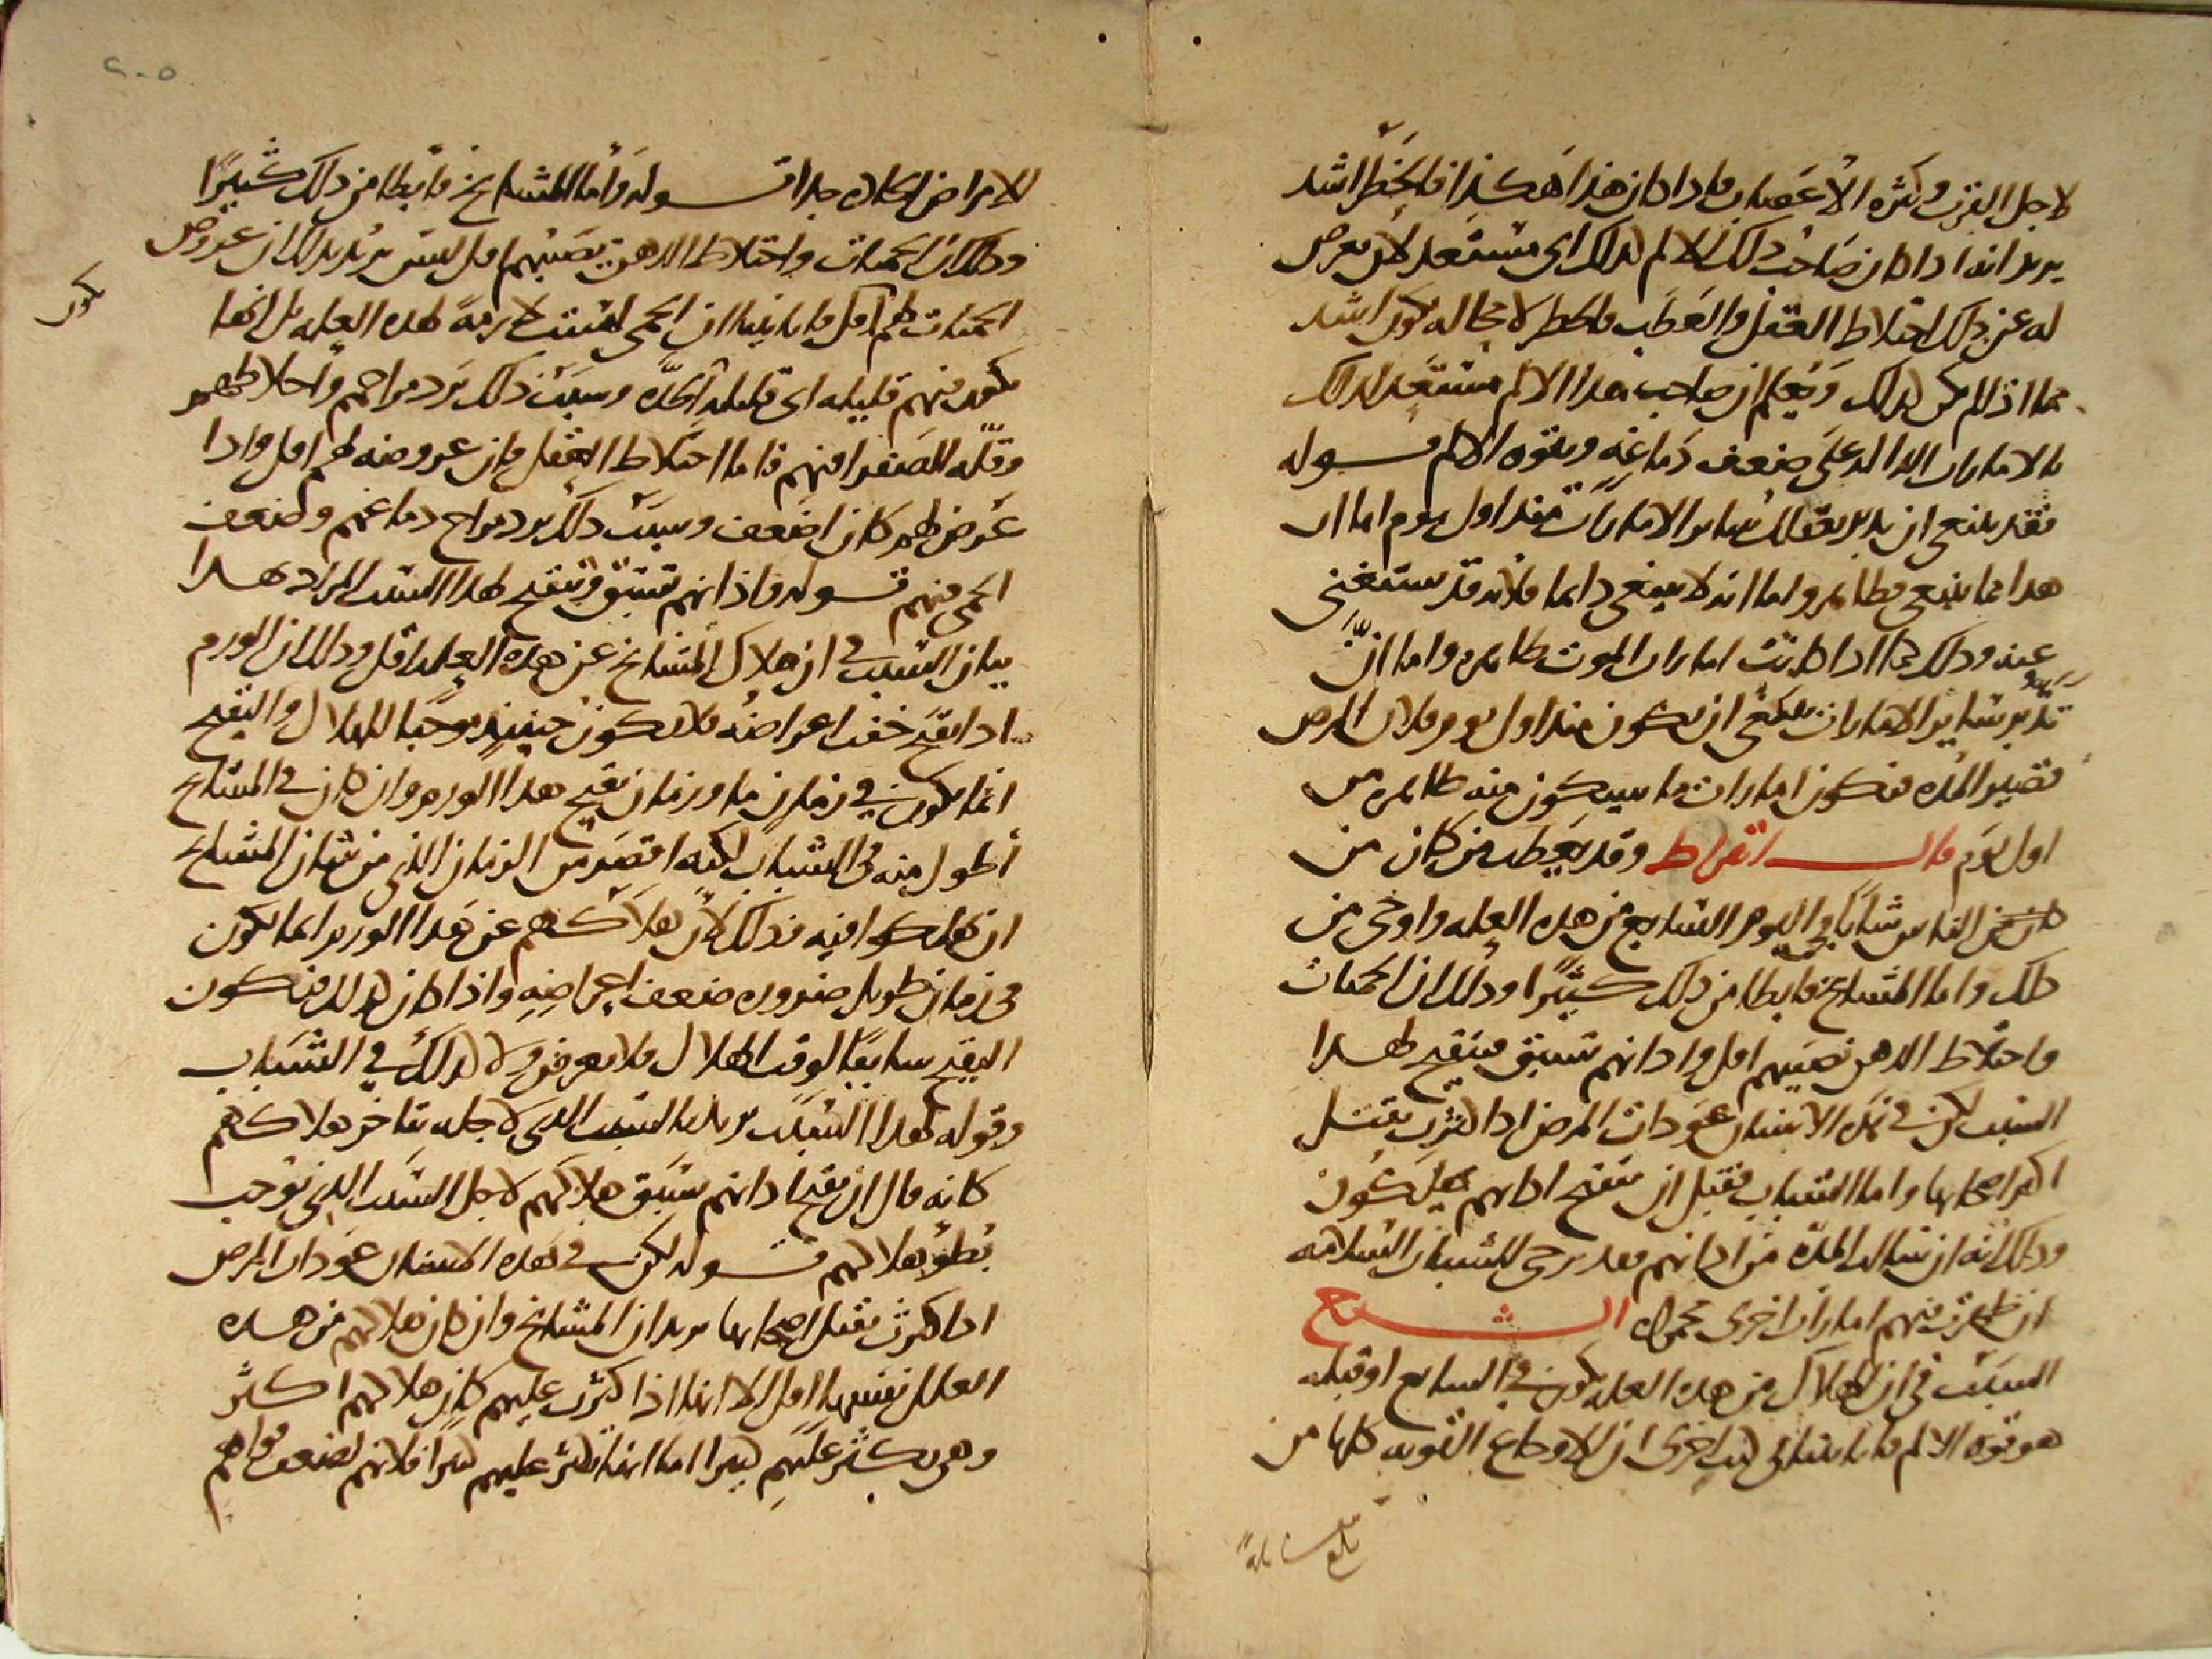 لاجل القرب وكثره الأعصاب فاذا كان هذا هكذا فالخطر اشد
يريد انه اذا كان صاحب ذلك الالم كذلك اى مستعد لان يعرض
له عن ذلك اختلاط العقل والعطب فالخطر لا محاله يكون اشد
مما اذا لم يكن كذلك ويعلم ان صاحب هذا الالم مستعد لذلك
بالامارات الداله على ضعف دماغه وبقوه الالم قوله
فقد ينبغى ان يدبر بعقلك ساير الامارات منذ اول يوم اما ان
هذا مما ينبغى فظاهر واما انه لا ينبغى دايما فلانه قد يستغنى
عنه وذلك كما اذا كانت امارات الموت ظاهره واما انّ
تدبر ساير الامارات ينبغى ان يكون منذ اول يوم فلان المرض
قصير المده فتكون امارات ما سيكون منه ظاهره من
اول يوم قال ابقراط وقد يعطب من كان من
الناس شابا فى اليوم السابع من هذه العله واوحى من
ذلك واما المشايخ فابطا من ذلك كثيرا وذلك ان الحميات
واختلاط الذهن تصيبهم اقل واذانهم تسبق فتقيح لهذا
السبب لكن فى هذه الاسنان عودات المرض اذا كثرت تقتل
اكثر اصحابها واما الشباب فقبل ان تتقيح اذانهم يهلكون
وذلك انه ان سالت المدّه من اذانهم فقد يرجى للشباب السلامه
ان ظهرت فيهم امارات اخرى محموده الشرح
السبب فى ان الهلاك من هذه العله يكون فى السابع او قبله
هو قوه الالم فانا بينا فى كتب اخرى ان الاوجاع القويه كلها من
للامراض الحاده جدا قوله وأما المشايخ فابطا من ذلك كثيرًا
وذلك ان الحميات واختلاط الذهن يصيبهم اقل ليس يريد بذلك ان عروض
الحميات لهم اقل فانا بينا ان الحمى ليست لازمةً لهذه العله بل انها
تكون فيهم قليله اى قليلة الحدّه وسبب ذلك برد مزاجهم واخلاطهم
وقلّه الصفرا فيهم فاما اختلاط العقل فان عروضه لهم اقل واذا
عرض لهم كان اضعف وسبب ذلك برد مزاج دماغهم وضعف
الحمى فيهم قوله واذانهم تسبق فتتقيح لهذا السبب المراد بهذا
بيان السبب فى ان هلاك المشايخ عن هذه العله اقل وذلك ان الورم
اذا تقيح خفت اعراضه فلا يكون حينيذ موجبا للهلاك والتقيح
انما يكون فى زمان ما وزمان تقيح هذا الورم وان كان فى المشايخ
أطول منه فى الشباب لكنه اقصر من الزمان الذى من شان المشايخ
ان يهلكوا فيه وذلك لأن هلاكهم عن هذا الورم انما يكون
فى زمان طويل ضروره ضعف اعراضه واذا كان كذلك فيكون
التقيح سابقا لوقت الهلاك فلا يعرض ولا كذلك فى الشباب
وقوله لهذا السبب يريد به السبب الذى لاجله تتاخر هلاكهم
كانه قال ان تقيح اذانهم تسبق هلاكهم لاجل السبب الذى يوجب
بُطوء هلاكهم قوله لكن فى هذه الاسنان عودات المرض
اذا كثرت تقتل اصحابها يريد ان المشايخ وان كان هلاكهم من هذه
العلل نفسها اقل الا انها اذا كثرت عليهم كان هلاكهم اكثر
وهى تكثر عليهم كثيرا اما انها تكثر عليهم كثيرا فلانهم لضعف قواهم
يكون